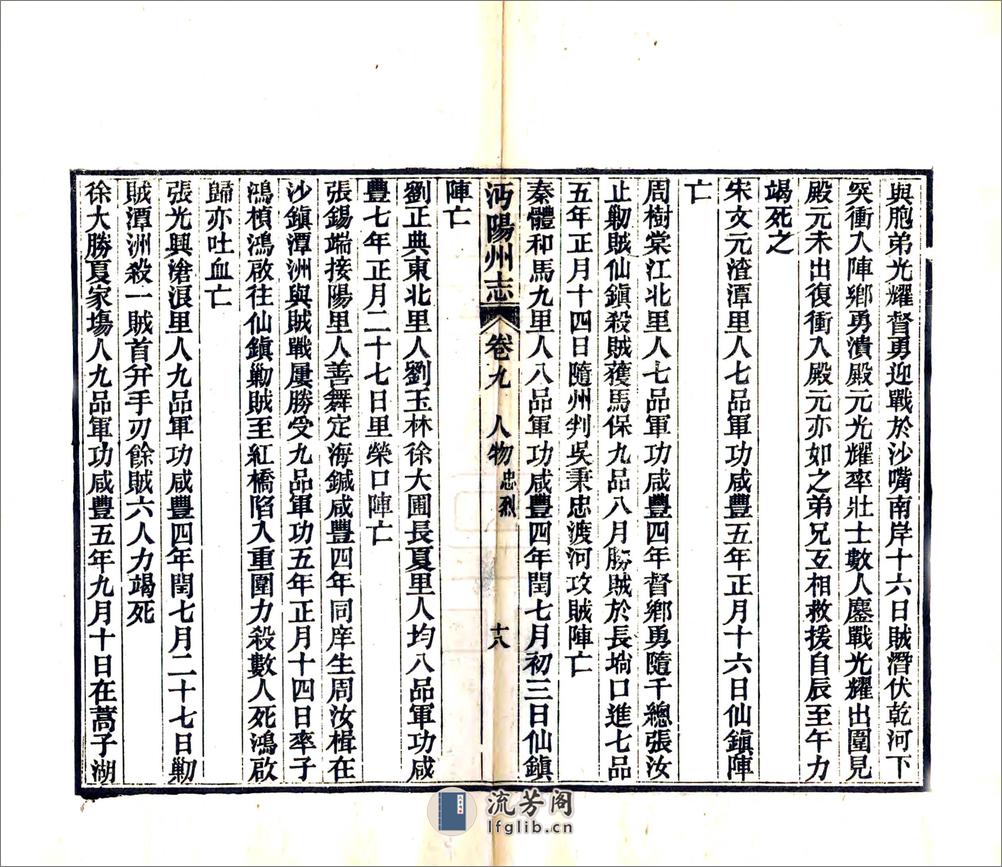 與胞弟光耀督勇迎戰於沙嘴南岸十六日賊潛伏乾河下
突衝入陣鄉勇潰殿元光耀率壯士數人鏖戰光耀出圍見
殿元未出復衝入殿元亦如之弟兄互相救援自辰至午力
竭死之
宋文元渣潭里人七品軍功咸豐五年正月十六日仙鎮陣
亡
周樹棠江北里人七品軍功咸豐四年督鄉勇隨千總張汝
止勦賊仙鎮殺賊獲馬保九品八月勝賊於長垱口進七品
五年正月十四日隨州判吳秉忠渡河攻賊陣亡
秦體和馬九里人八品軍功咸豐四年閏七月初三日仙鎮
沔陽州志 卷九 人物 忠烈 十八
陣亡
劉正典東北里人劉玉林徐大圃長夏里人均八品軍功咸
豐七年正月二十七日里榮口陣亡
張錫端接陽里人善舞定海鍼咸豐四年同庠生周汝楫在
沙鎮潭洲與賊戰屢勝受九品軍功五年正月十四日率子
鴻楨鴻啟往仙鎮勦賊至紅橋陷入重圍力殺數人死鴻啟
歸亦吐血亡
張光興滄浪里人九品軍功咸豐四年閏七月二十七日勦
賊潭洲殺一賊首并手刃餘賊六人力竭死
徐大勝夏家塲人九品軍功咸豐五年九月十日在蒿子湖
流芳阁
lfglib.cn